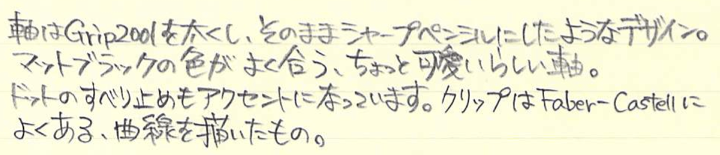 軸はGrip2001を太くし、そのままシャープペンシルにしたようなデザイン。
マットブラックの色がよく合う、ちょっと可愛いらしい軸。
ドットのすべり止めもアクセントになっています。クリップはFaber-Castellに
よくある、曲線を描いたもの。